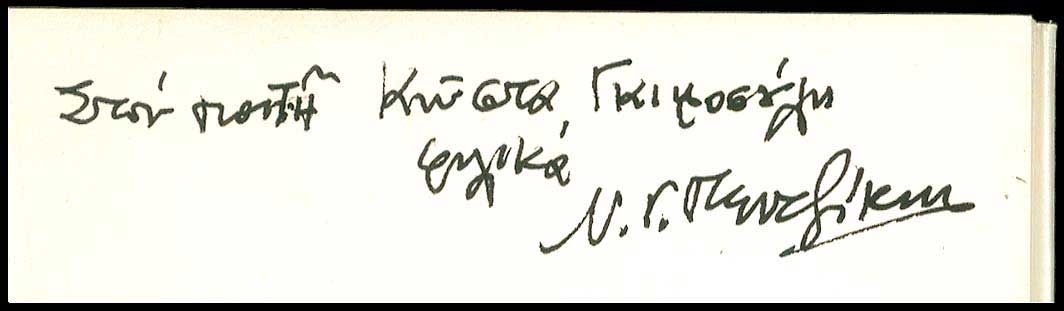 Στόν ποιητῆ Κώστα Γκιμοσούλη
φιλικά
Ν. Γ. Πεντζίκης